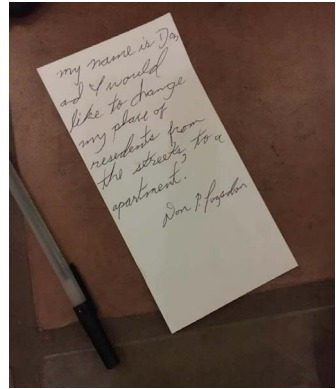 my name is Don
and I would
like to change
my place of
residents from
the streets to a
apartment?
Don P. Logsdon